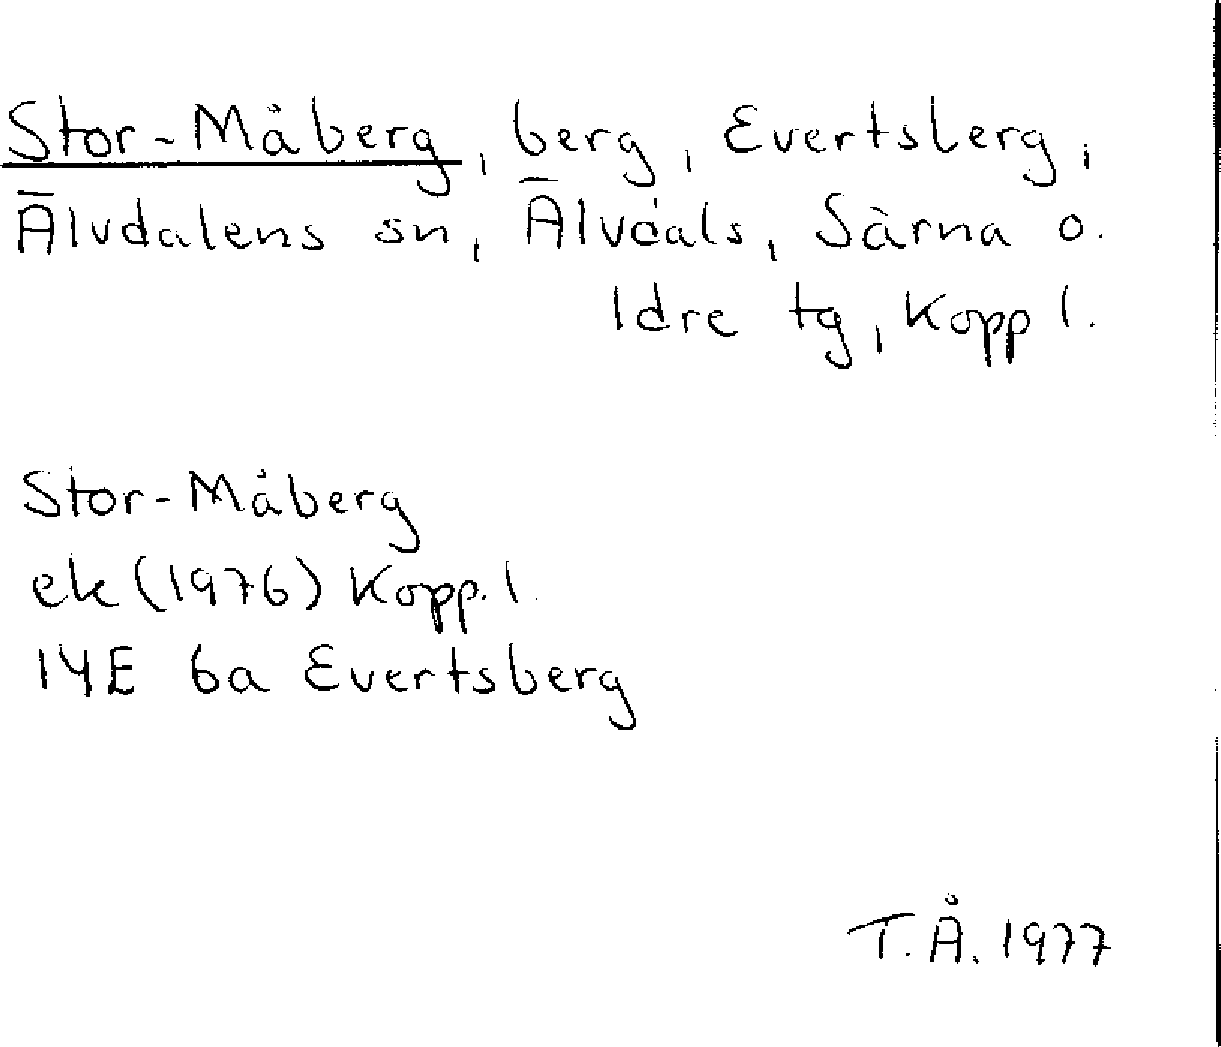 Stor-Måberg, berg, Evertsberg,
Älvdalens sn, Älvdals, Särna o.
Idre tg, Kopp l.
Stor-Måberg
ek (1976) Kopp. l.
14E 6a Evertsberg
T. Å. 1977